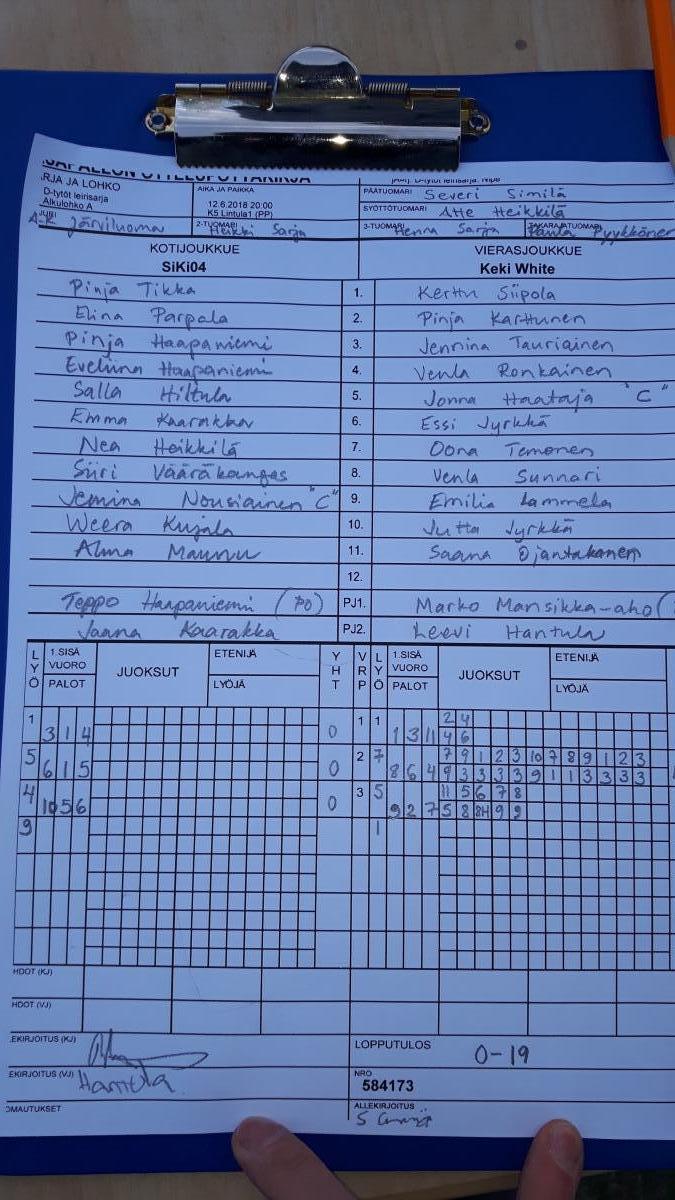 SARJA JA LOHKO
D-tytöt leirisarja
Alkulohko A
AIKA JA PAIKKA
12.6.2018 20:00
K5 Lintula1 (PP)
PÄÄTUOMARI Severi Similä
SYÖTTÖTUOMARI Atte Heikkilä
A-K Järviluoma
2-TUOMARI Heikki Sarja
3-TUOMARI Henna Sarja
TAKARAJATUOMARI Paula Pyykkönen
KOTIJOUKKUE VIERASJOUKKUE
SiKi04 Keki White
Pinja Tikka 1. Kerttu Siipola
Elina Parpala 2. Pinja Karttunen
Pinja Haapaniemi 3. Jennina Tauriainen
Eveliina Haapaniemi 4. Venla Ronkainen
Salla Hiltula 5. Jonna Haataja "C"
Emma Kaarakka 6. Essi Jyrkkä
Nea Heikkilä 7. Oona Temonen
Siiri Vääräkangas 8. Venla Sunnari
Jemina Nousiainen "C" 9. Emilia Lammela
Weera Kujala 10. Jutta Jyrkkä
Alma Maunu 11. Saana Ojantakanen
12.
Teppo Haapaniemi (PO) PJ1. Marko Mansikka-aho (
Jaana Kaarakka PJ2. Leevi Hantula
LYÖ 1.SISÄ VUORO PALOT JUOKSUT ETENIJÄ LYÖJÄ YHT VRP LYÖ 1.SISÄ VUORO PALOT JUOKSUT ETENIJÄ LYÖJÄ
1 3 1 4 0 1 1 1 3 11 2 4
4 6
5 6 1 5 0 2 7 8 6 4 7 9 1 2 3 10 7 8 9 1 2 3
9 3 3 3 3 9 1 1 3 3 3 3
4 10 5 6 0 3 5 9 2 7 11 5 6 7 8
5 8 8H 9 9
9 1
HDOT (KJ)
HDOT (VJ)
EKIRJOITUS (KJ)
LOPPUTULOS 0-19
EKIRJOITUS (VJ) Hantula
NRO
584173
OMAUTUKSET
ALLEKIRJOITUS